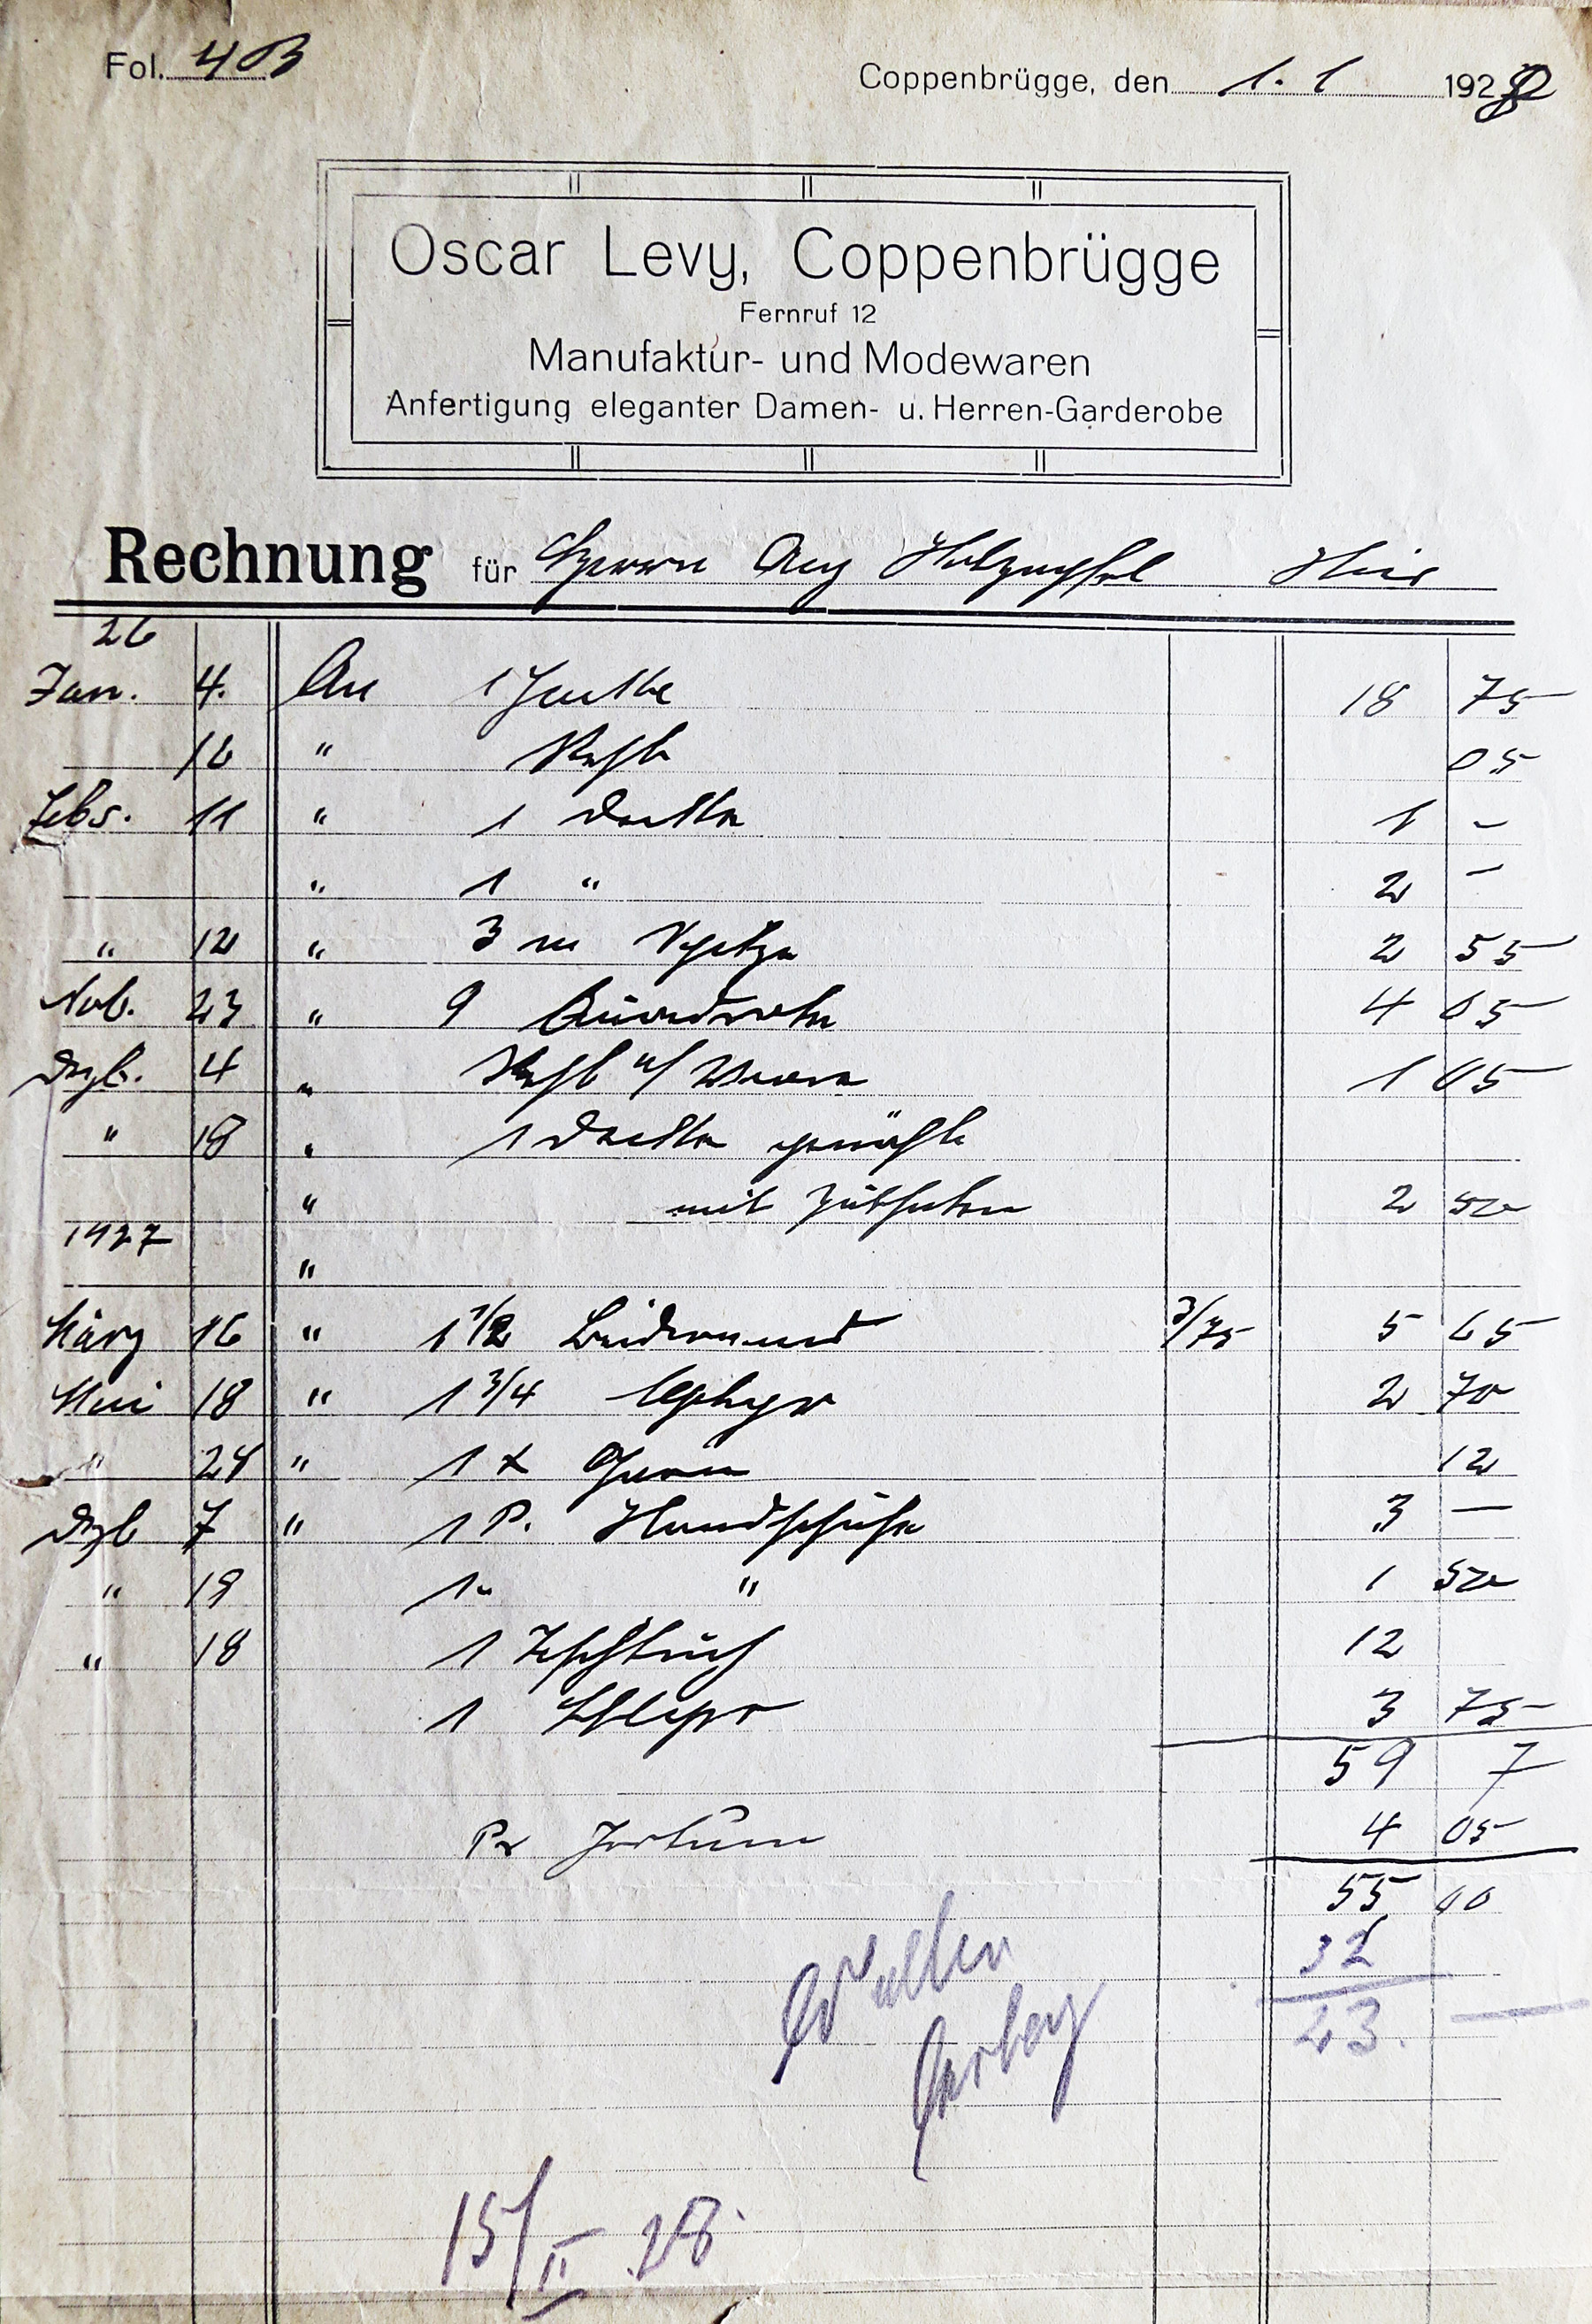 Fol. 403
Coppenbrügge, den 1. 1 1928
Oscar Levy, Coppenbrügge
Fernruf 12
Manufaktur- und Modewaren
Anfertigung eleganter Damen- u. Herren-Garderobe
Rechnung für Herrn Aug Holzapfel Hier
26
Jan. 4. An 1 Jacke 18 75
16 " 05
Febr. 11 " 1 Decke 1 -
" 1 " 2 -
" 12 " 3 m Spitze 2 55
Nov. 23 " 9 4 05
Dzb. 4 " 1 05
" 18 " 1 Decke genäht
" mit Zuthaten 2 50
1927
"
März 16 " 1 1/2 Beiderwand 3/75 5 65
Mai 18 " 1 3/4 Zephyr 2 70
" 24 " 1 x Garn 12
Dzb 7 " 1 P. Handschuhe 3 —
" 19 1 " " 1 50
" 18 1 Tischtuch 12
1 3 75
59 7
Pr Irrtum 4 05
55
32
23. —
15/II 28.